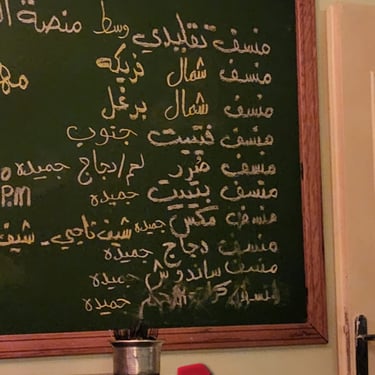 منسف تقليدي وسط منصة
منسف شمال فريكه
منسف شمال برغل
منسف فتيت جنوب
منسف صُرر لحم/دجاج جميده
منسف بتيت جميده
P.M
منسف مكس جميده شيف ناجي - شيف
منسف دجاج جميده
منسف ساندوش جميده
منسف جميده